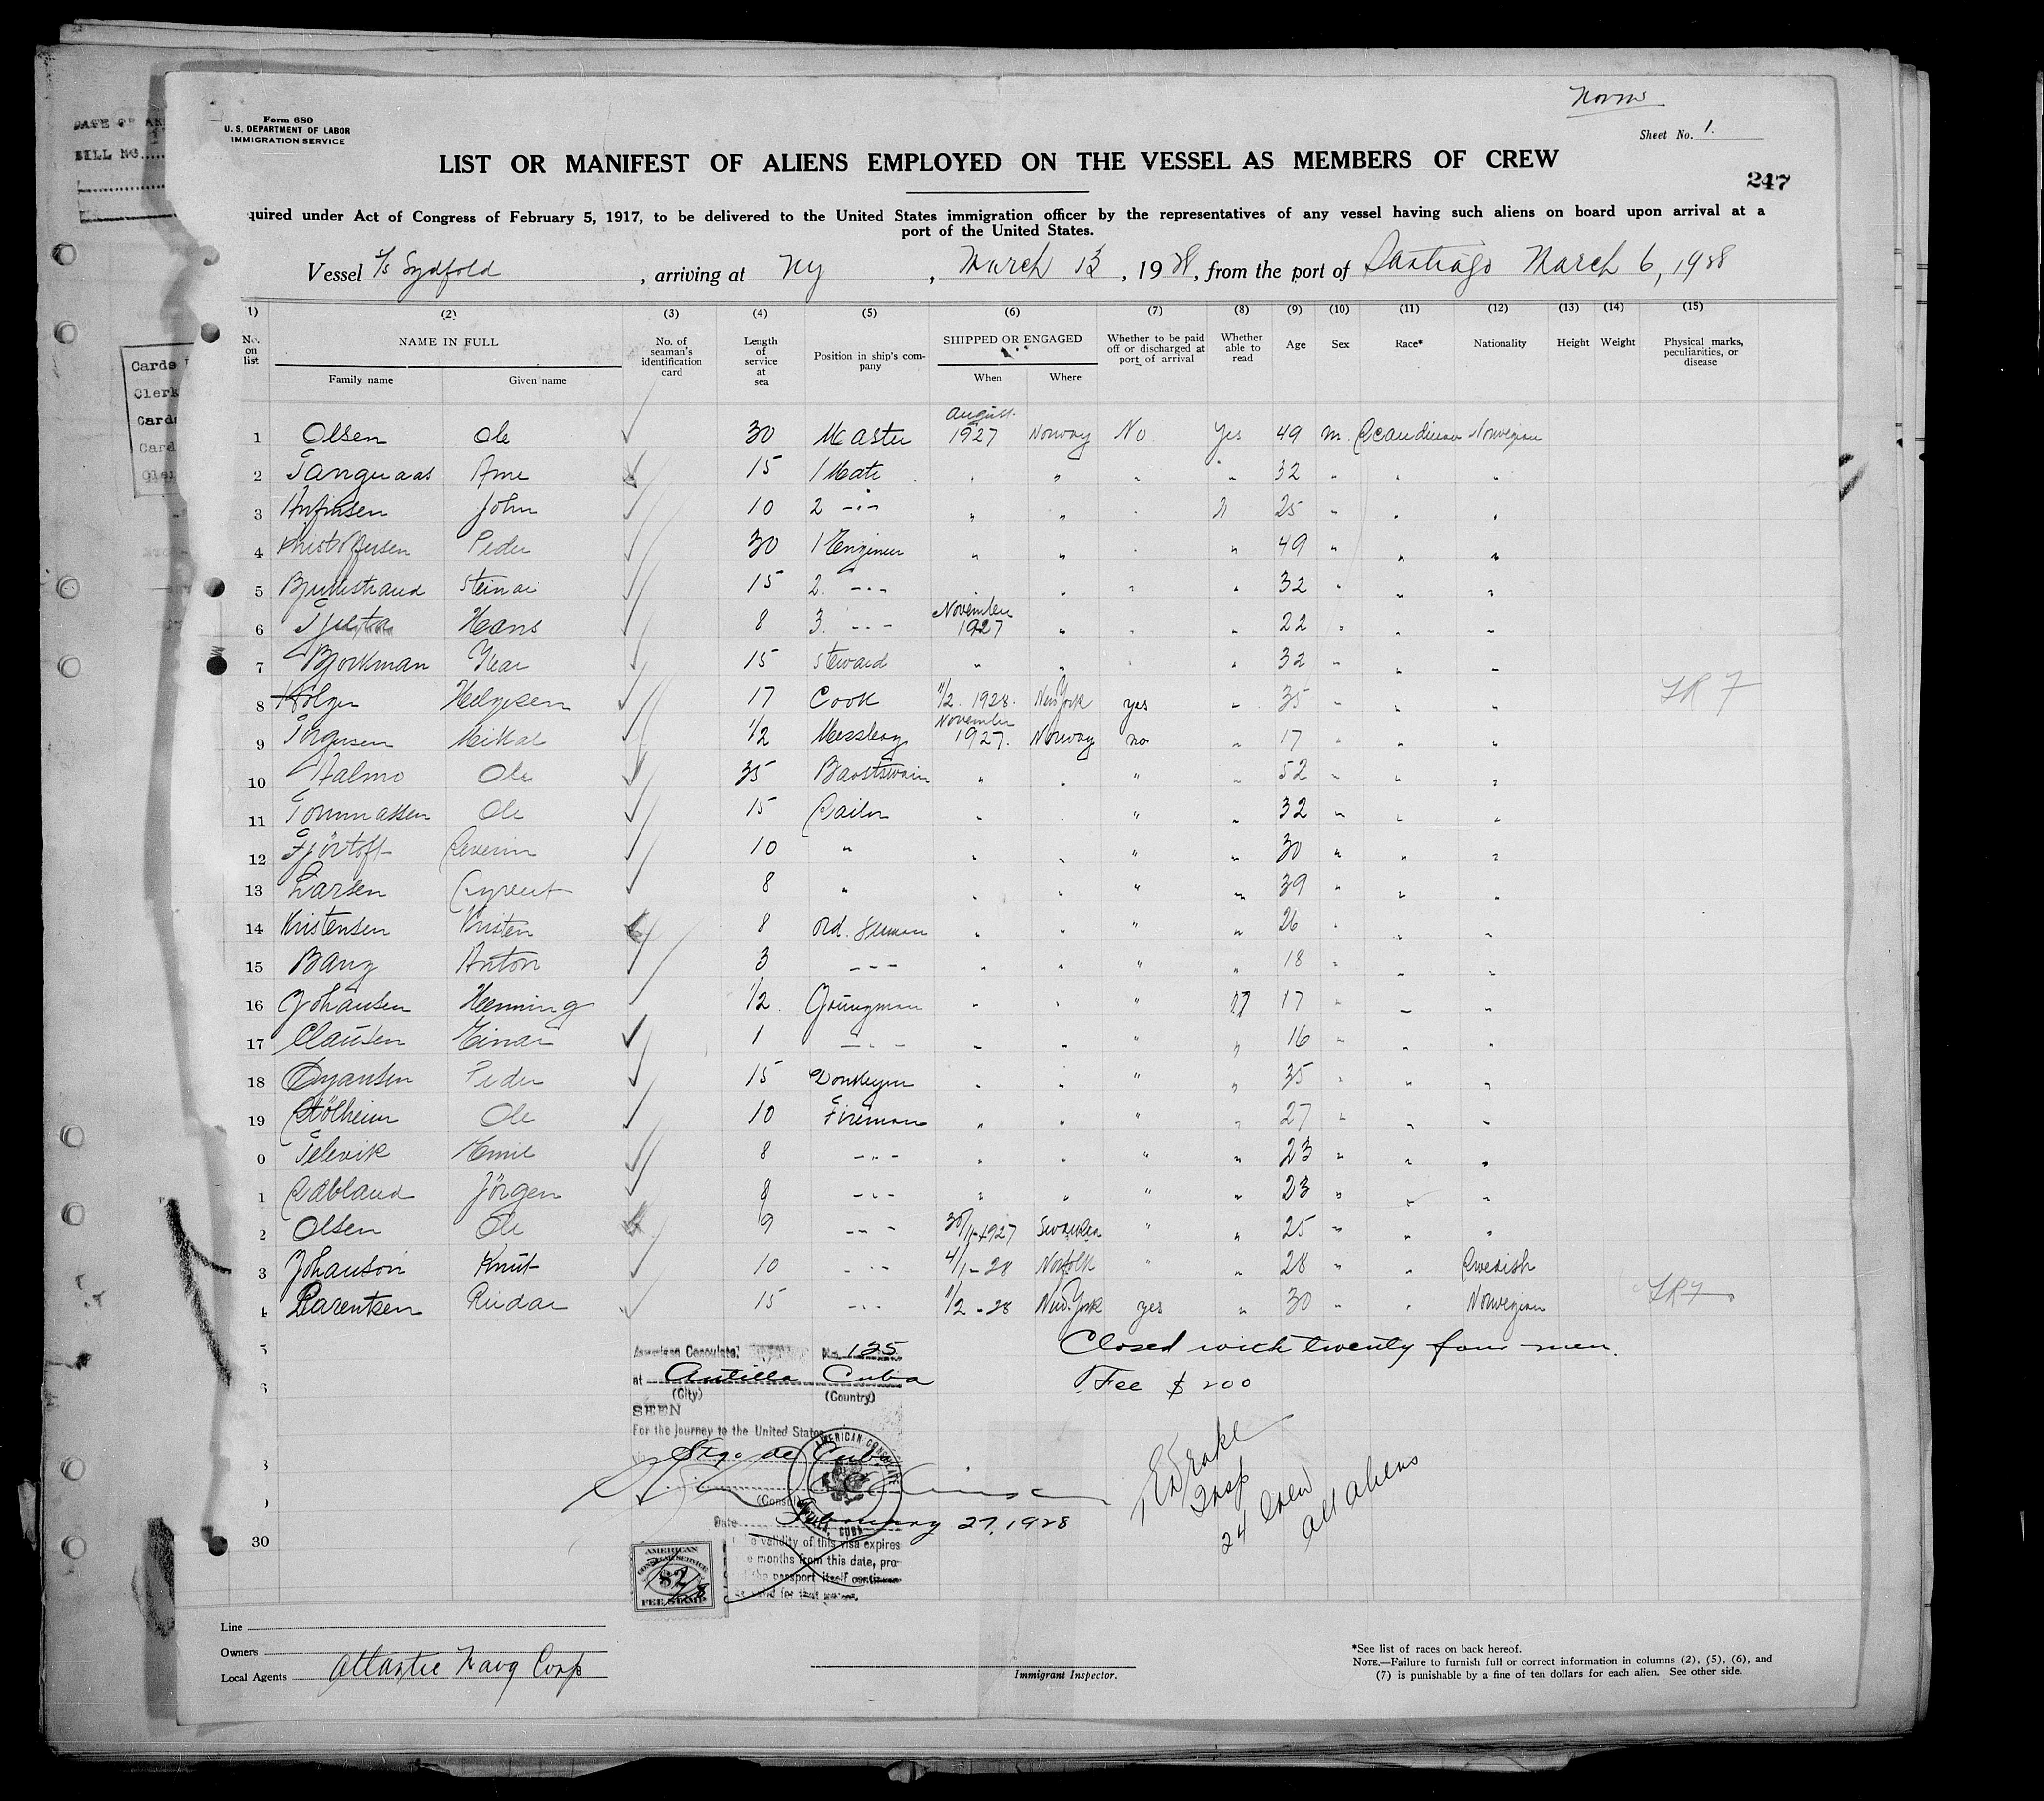 Norw
Form 680
U. S. DEPARTMENT OF LABOR
IMMIGRATION SERVICE
Sheet No. 1.
LIST OR MANIFEST OF ALIENS EMPLOYED ON THE VESSEL AS MEMBERS OF CREW
247
quired under Act of Congress of February 5, 1917, to be delivered to the United States immigration officer by the representatives of any vessel having such aliens on board upon arrival at a
port of the United States.
Vessel S/s Sydfold, arriving at Ny, March 13, 1928, from the port of Santiago March 6, 1928
1) (2) (3) (4) (5) (6) (7) (8) (9) (10) (11) (12) (13) (14) (15)
No. on list NAME IN FULL Family name Given name No. of seaman's identification card Length of service at sea Position in ship's company SHIPPED OR ENGAGED When Where Whether to be paid off or discharged at port of arrival Whether able to read Age Sex Race* Nationality Height Weight Physical marks, peculiarities, or disease
1 Olsen Ole 30 Master August 1927 Norway No Yes 49 m. Scandinav Norwegian
2 Arne 15 1 Mate " " " " 32 " " "
3 John 10 2 -"- " " " " 25 " " "
4 Kristoffersen Peder 30 1 Engineer " " " " 49 " " "
5 Steinar 15 2. -"- " " " " 32 " " "
6 Hans 8 3. -"- November 1927 " " " 22 " " "
7 Bjorkman Ivar 15 Steward " " " " 32 " " "
8 Holger Helgesen 17 Cook 11/2 1928. New York yes " 35 " " "
9 Torgersen Mikal 1/2 Messboy November 1927. Norway no " 17 " " "
10 Ole 35 Baostswain " " " " 52 " " "
11 Tommassen Ole 15 Sailor " " " " 32 " " "
12 Fjörtoft Severin 10 " " " " " 30 " " "
13 Larsen 8 " " " " " 39 " " "
14 Kristensen Kristen 8 Ord. Seaman " " " " 26 " " "
15 Bang Anton 3 -"- " " " " 18 " " "
16 Johansen Henning 1/2 Youngman " " " " 17 " " "
17 Clausen Einar 1 -"- " " " " 16 " " "
18 Peder 15 Donkeyman " " " " 35 " " "
19 Stölheim Ole 10 Fireman " " " " 27 " " "
0 Televik Emil 8 -"- " " " " 23 " " "
1 Jörgen 8 -"- " " " " 23 " " "
2 Olsen Ole 9 -"- 1927 " " 25 " " "
3 Johanson Knut 10 -"- 4/1-28 Norfolk " " 28 " " Swedish
4 Barentsen Reidar 15 -"- 11/2-28 New York yes " 30 " " Norwegian
5
American Consulate No. 125
Closed with twenty four men.
6
at Antilla Cuba
(City) (Country)
Fee $ 200
SEEN
For the journey to the United States
Stgo de Cuba
AMERICAN CONSULATE
(Consul)
Date February 27, 1928
Insp
24 Crew
all aliens
30
validity of this visa expires
months from this date, pro-
the passport itself continues
valid for that
AMERICAN
CONSULAR SERVICE
$2
FEE STAMP
Line
Owners
Local Agents Atlantic Navg Corp
Immigrant Inspector.
*See list of races on back hereof.
NOTE.—Failure to furnish full or correct information in columns (2), (5), (6), and
(7) is punishable by a fine of ten dollars for each alien. See other side.